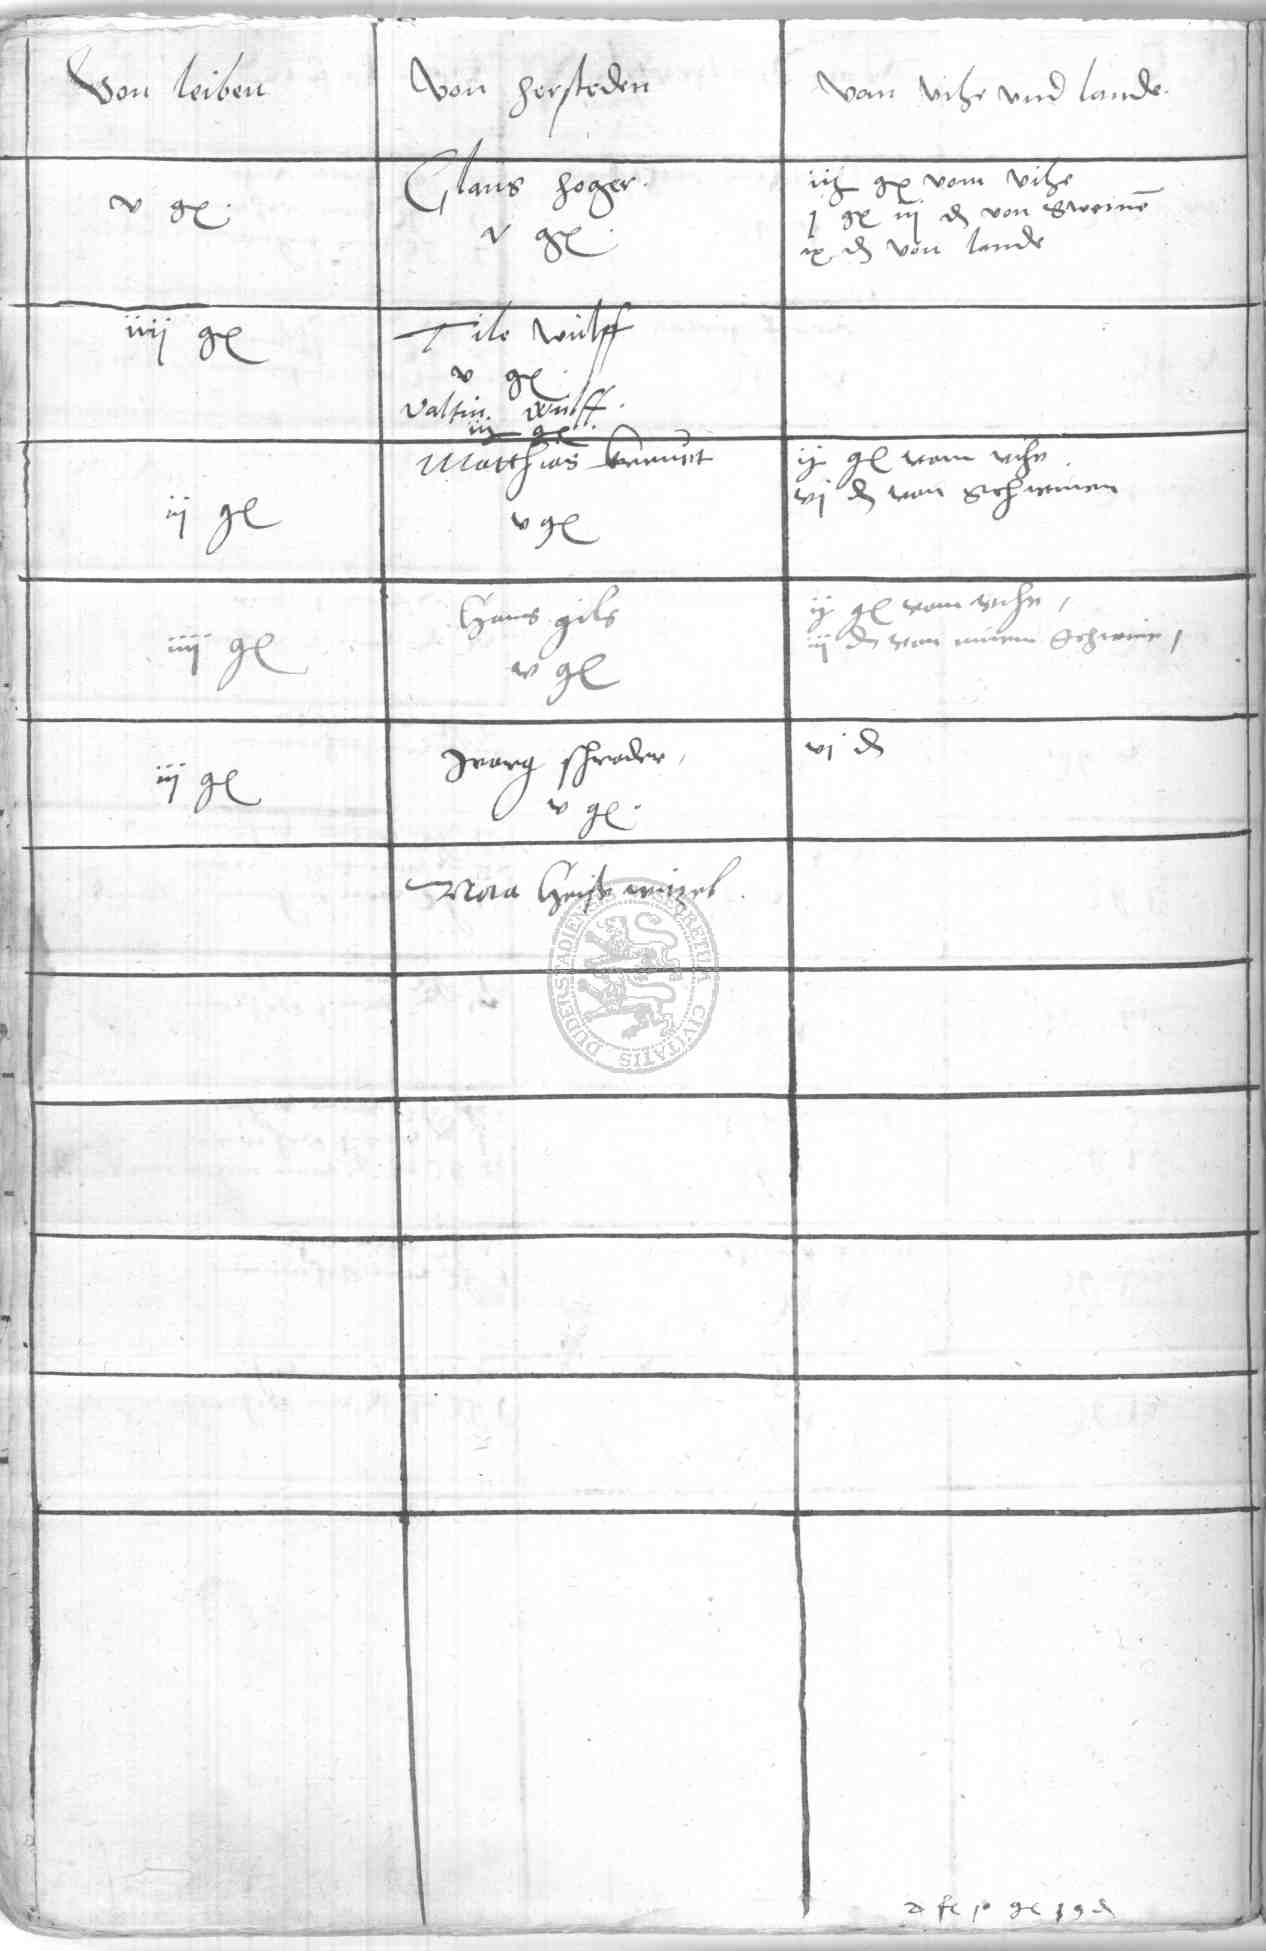 Von leiben
Von hersteden
Von vihe vnd lande
v gl
Claus hoger
v gl
iij gl vom vihe
j gl iij d von Sweinen
ix d von lande
iiij gl
Tile wulff
v gl
Valtin wulff
iij gl
ij gl
Matthias
v gl
ij gl vom vihe
vj d von Schweinen
iiij gl
Hans gils
v gl
ij gl vom vihe
iij d von einem Schwein
iij gl
Jorg schroder
v gl
vj d
DUDERSTADIENSIS SECRETUM CIVITATIS